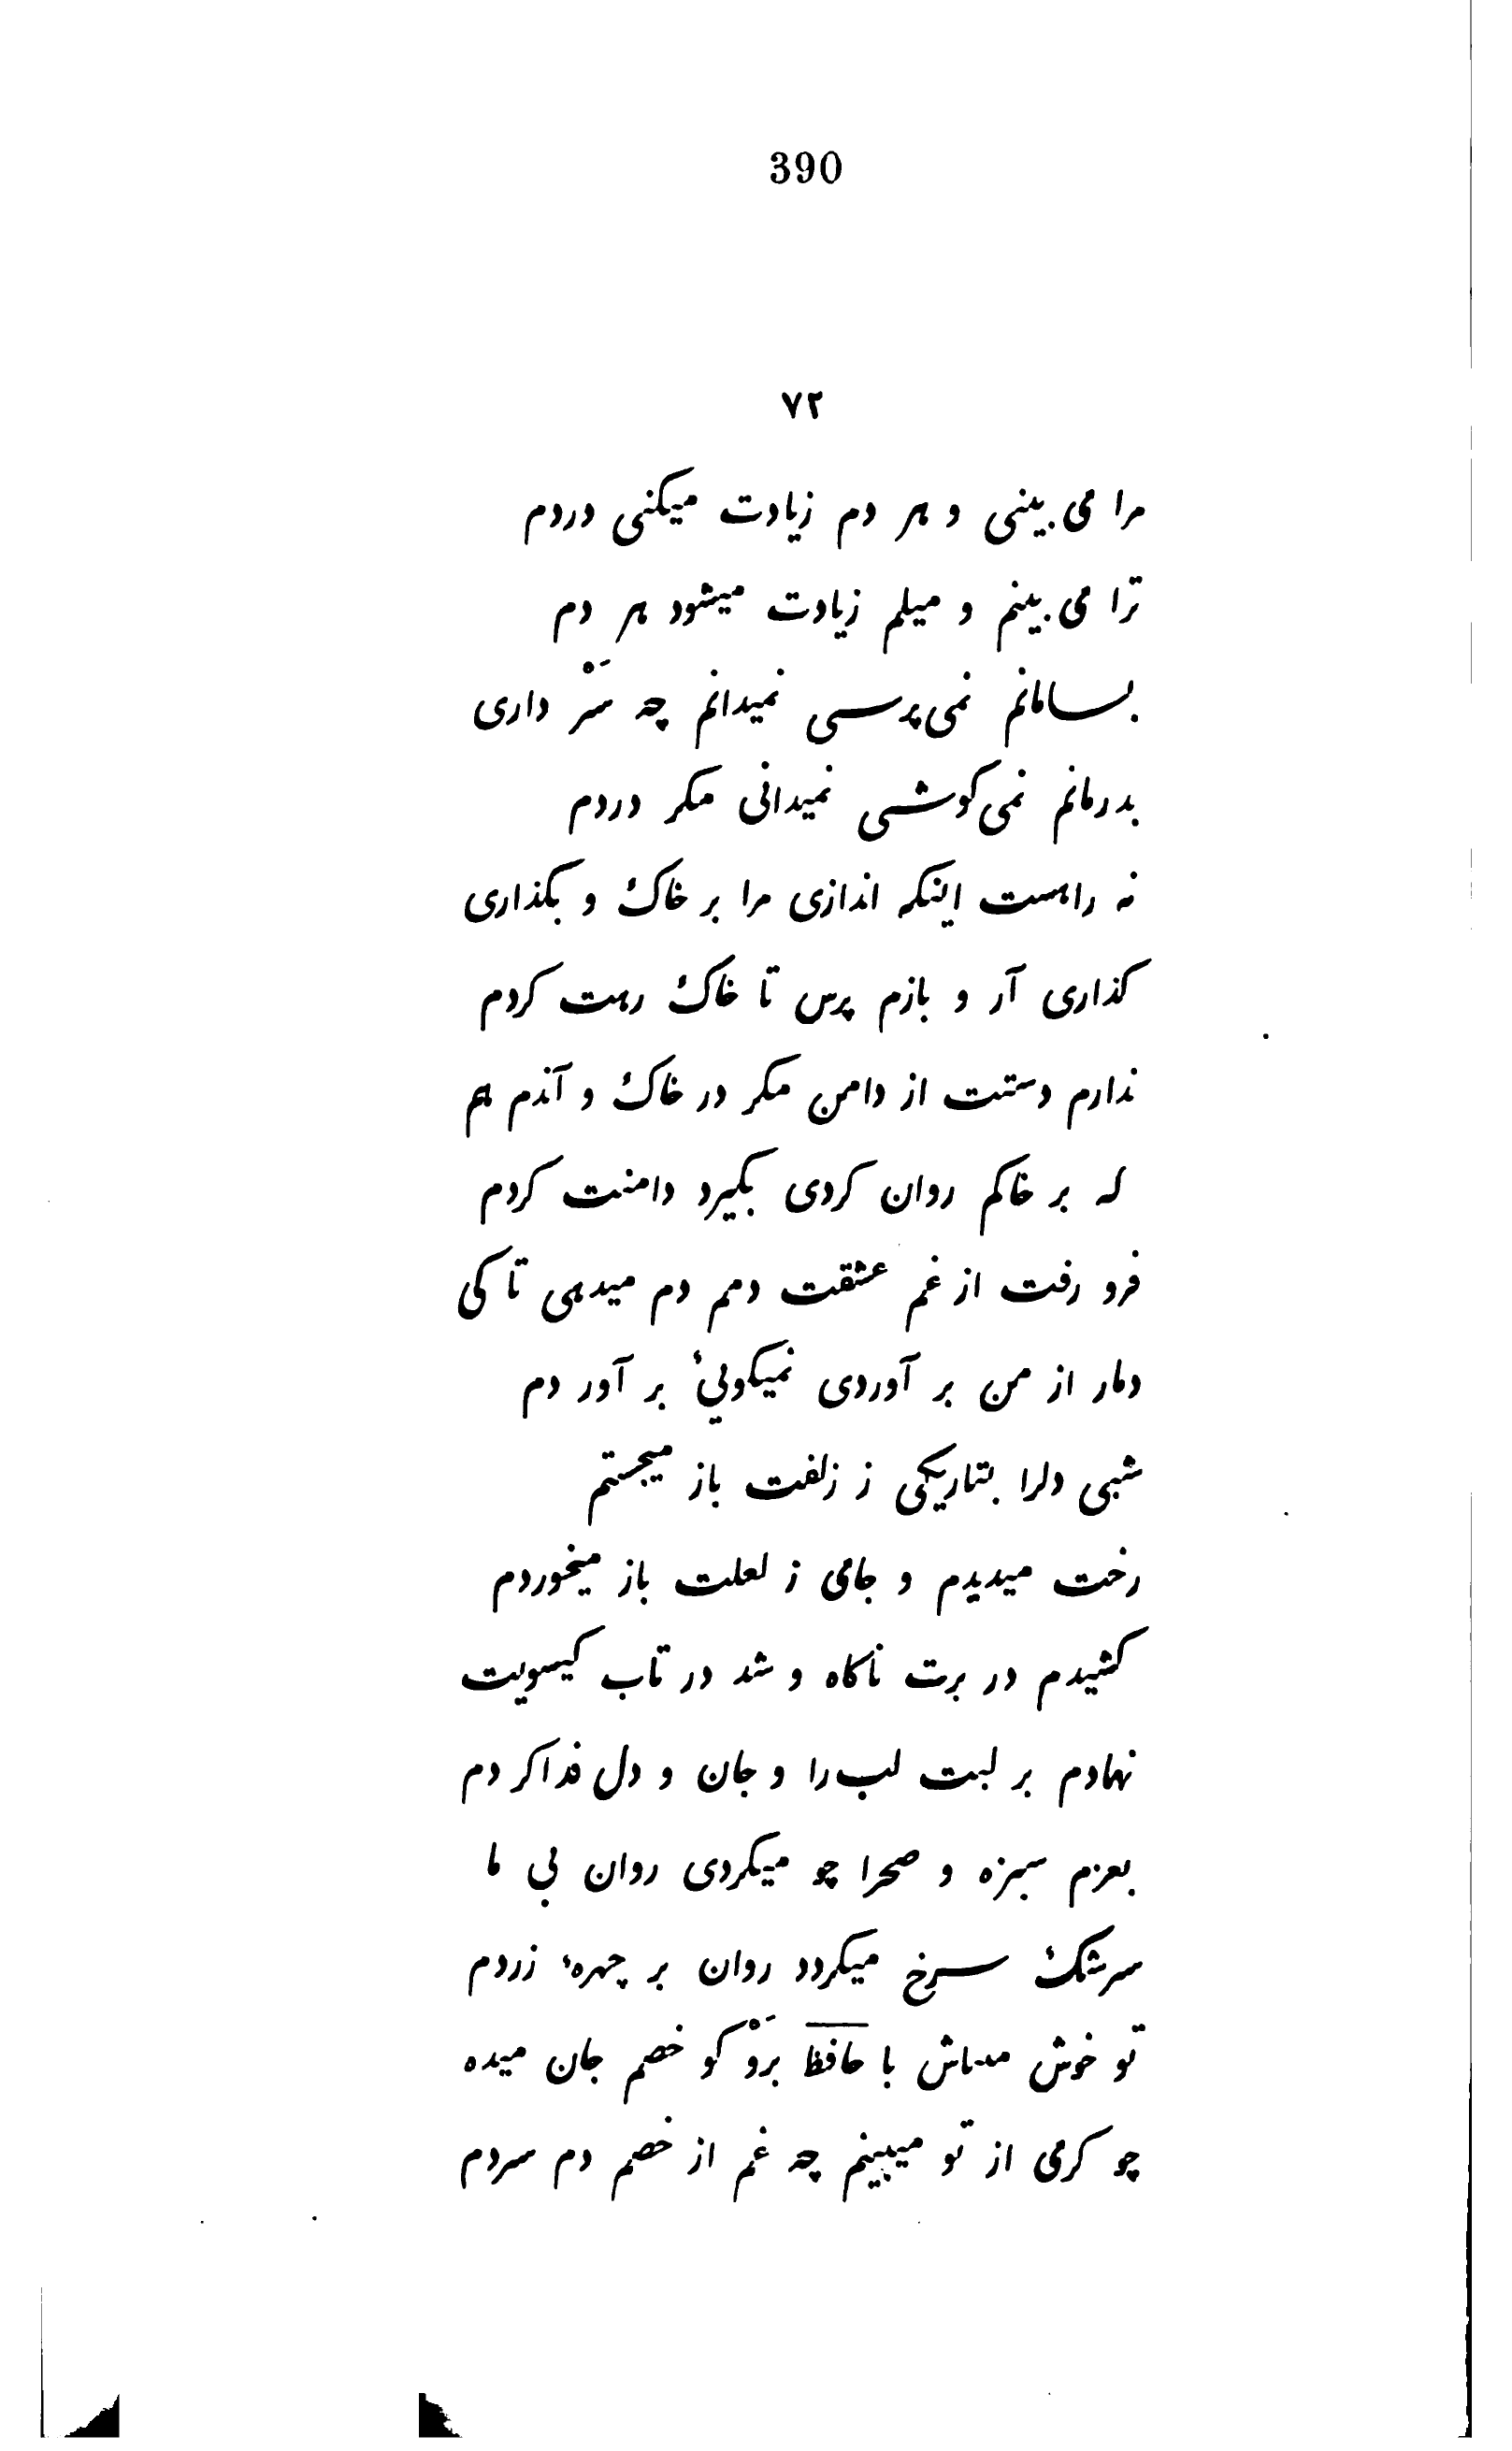 390
۷۲
مرا می بینی و هر دم زیادت میکنی دردم
ترا می بینم و میلم زیادت میشود هر دم
بسامانم نمی پرسی نمیدانم چه سَرْ داری
بدرمانم نمی کوشی نمیدانی مکر دردم
نه راهست اینکه اندازی مرا بر خاک و بکذاری
کذاری آر و بازم پرس تا خاک رهت کردم
ندارم دستت از دامن مکر در خاک و آندم هم
که بر خاکم روان کردی بکیرد دامنت کردم
فرو رفت از غم عشقت دمم دم میدهی تا کی
دمار از من بر آوردی نمیکوییٔ بر آور دم
شبی دلرا بتاریکی ز زلفت باز میجستم
رخت میدیدم و جامی ز لعلت باز میخوردم
کشیدم در برت ناکاه و شد در تاب کیسویت
نهادم بر لبت لب را و جان و دل فدا کردم
بعزم سبزه و صحرا چو میکردی روان بی ما
سرشک سرخ میکردد روان بر چهرهٔ زردم
تو خوش میباش با حافظ بَرَوْ کو خصم جان میده
چو کرمی از تو میبینم چه غم از خصم دم سردم